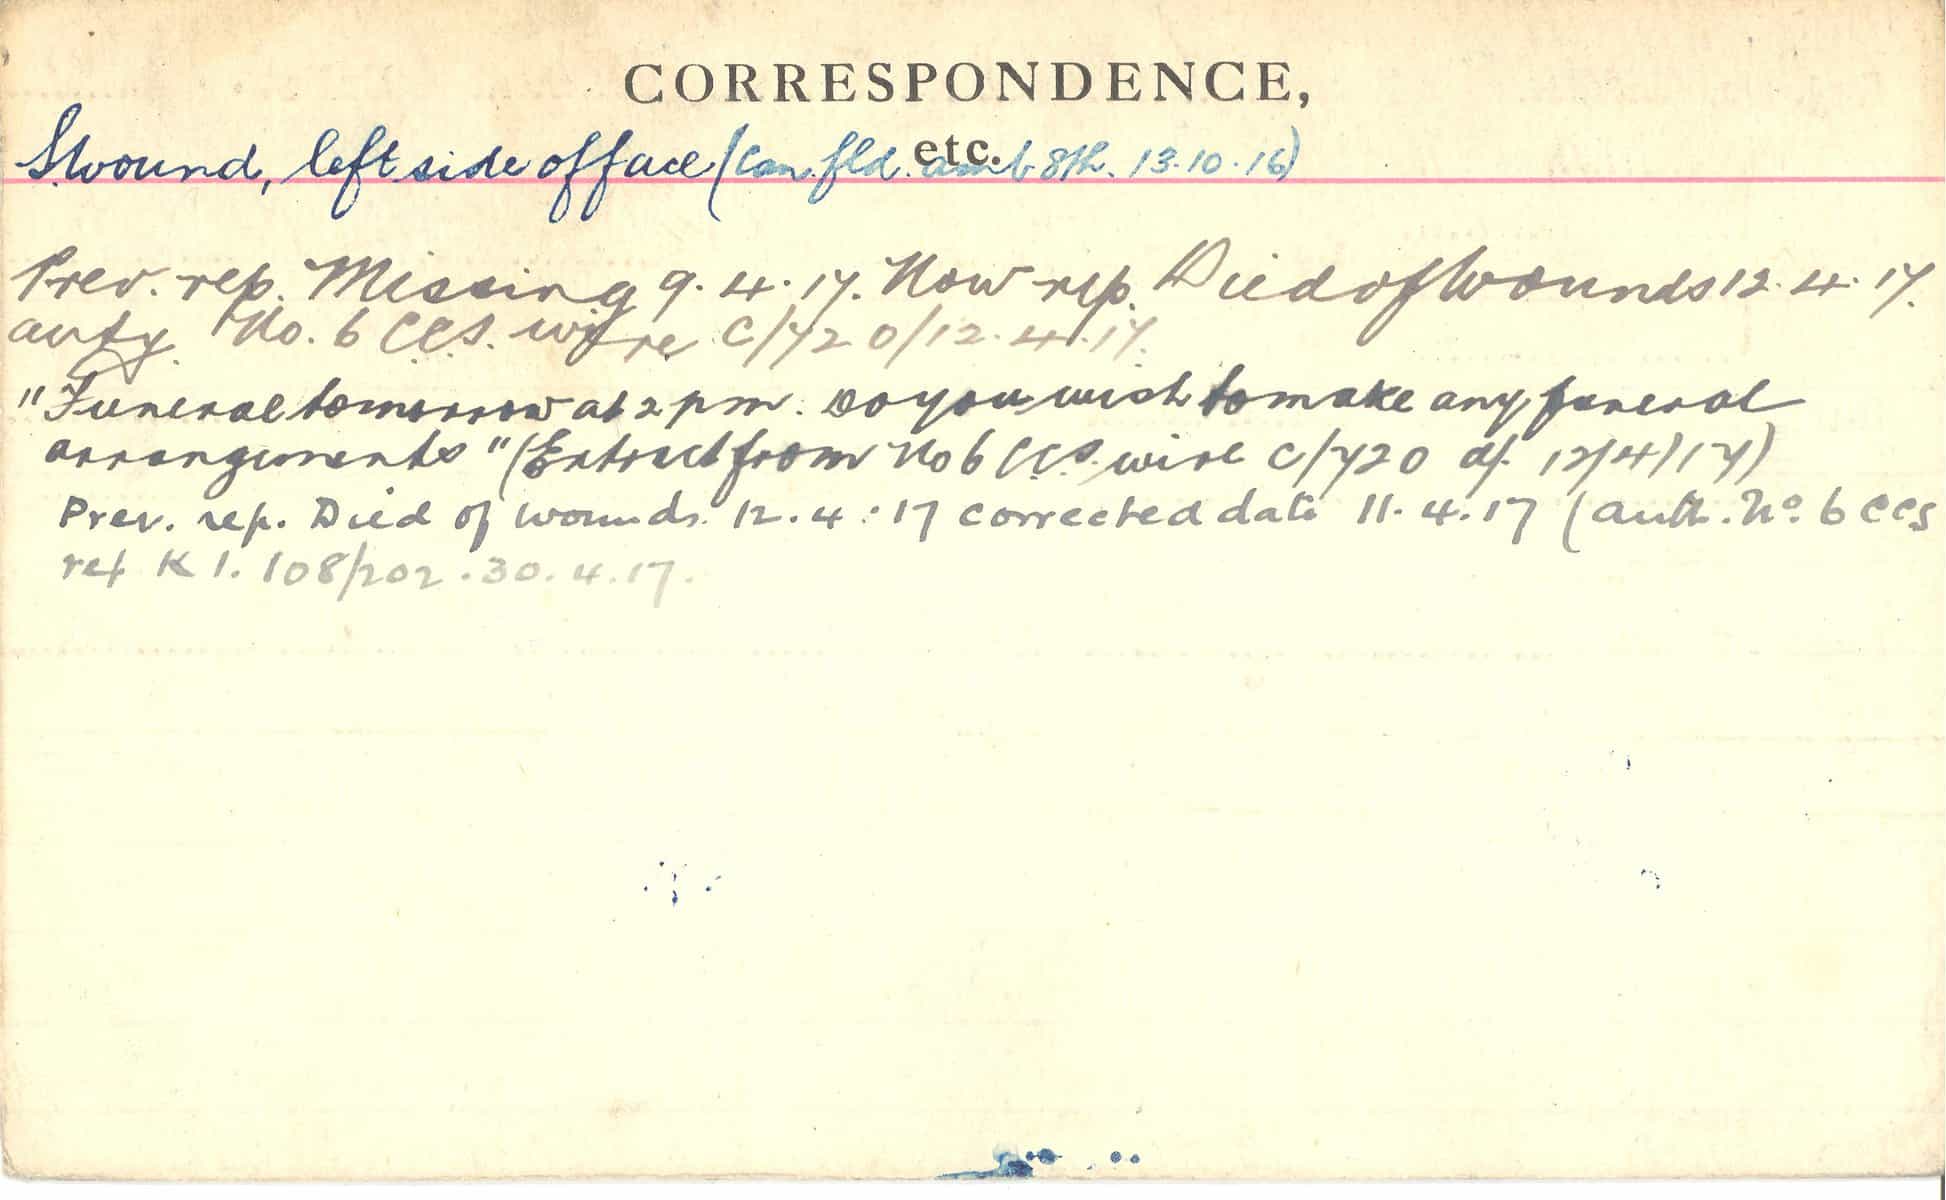 CORRESPONDENCE,
etc.
S.wound, left side of face (Can. fld. amb 8th. 13.10.16)
Prev. rep. Missing 9.4.17. Now rep. Died of Wounds 12.4.17.
auty. No. 6 C.C.S. wire C/720/12.4.17.
"Funeral tomorrow at 2 pm. Do you wish to make any funeral
arrangements" (Extract from No 6 CCS. wire C/720 d/. 12/4/17)
Prev. rep. Died of wounds. 12.4.17 corrected date 11.4.17 (auth. No. 6 CCS
ref K1.108/202.30.4.17.